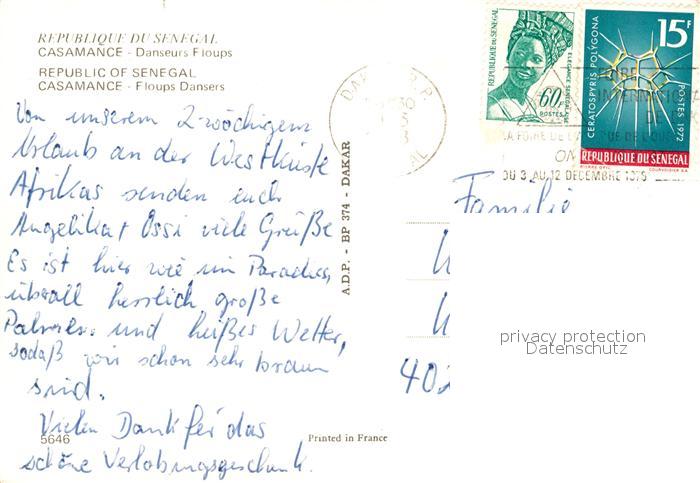 REPUBLIQUE DU SENEGAL
CASAMANCE - Danseurs Floups
REPUBLIC OF SENEGAL
CASAMANCE - Floups Dansers
Von unserem 2-wöchigem
Urlaub an der Westküste
Afrikas senden euch
Angelika + Ossi viele Grüße
Es ist hier wie im Paradies,
überall herrlich große
Palmen und heißes Wetter,
sodaß wir schon sehr braun
sind.
Vielen Dank für das
schöne Verlobungsgeschenk.
5646
Printed in France
A.D.P. - BP 374 - DAKAR
REPUBLIQUE DU SENEGAL
ELEGANCE SENEGALAISE
60F
POSTES
15F
CERATOSPYRIS POLYGONA
POSTES 1972
REPUBLIQUE DU SENEGAL
COURVOISIER S.A.
DAKAR R.P.
FOIRE
INTERNATIONALE
DE
LA FOIRE DE L'AFRIQUE DE L'OUEST
DU 3 AU 12 DECEMBRE 1976
Familie
402
privacy protection
Datenschutz